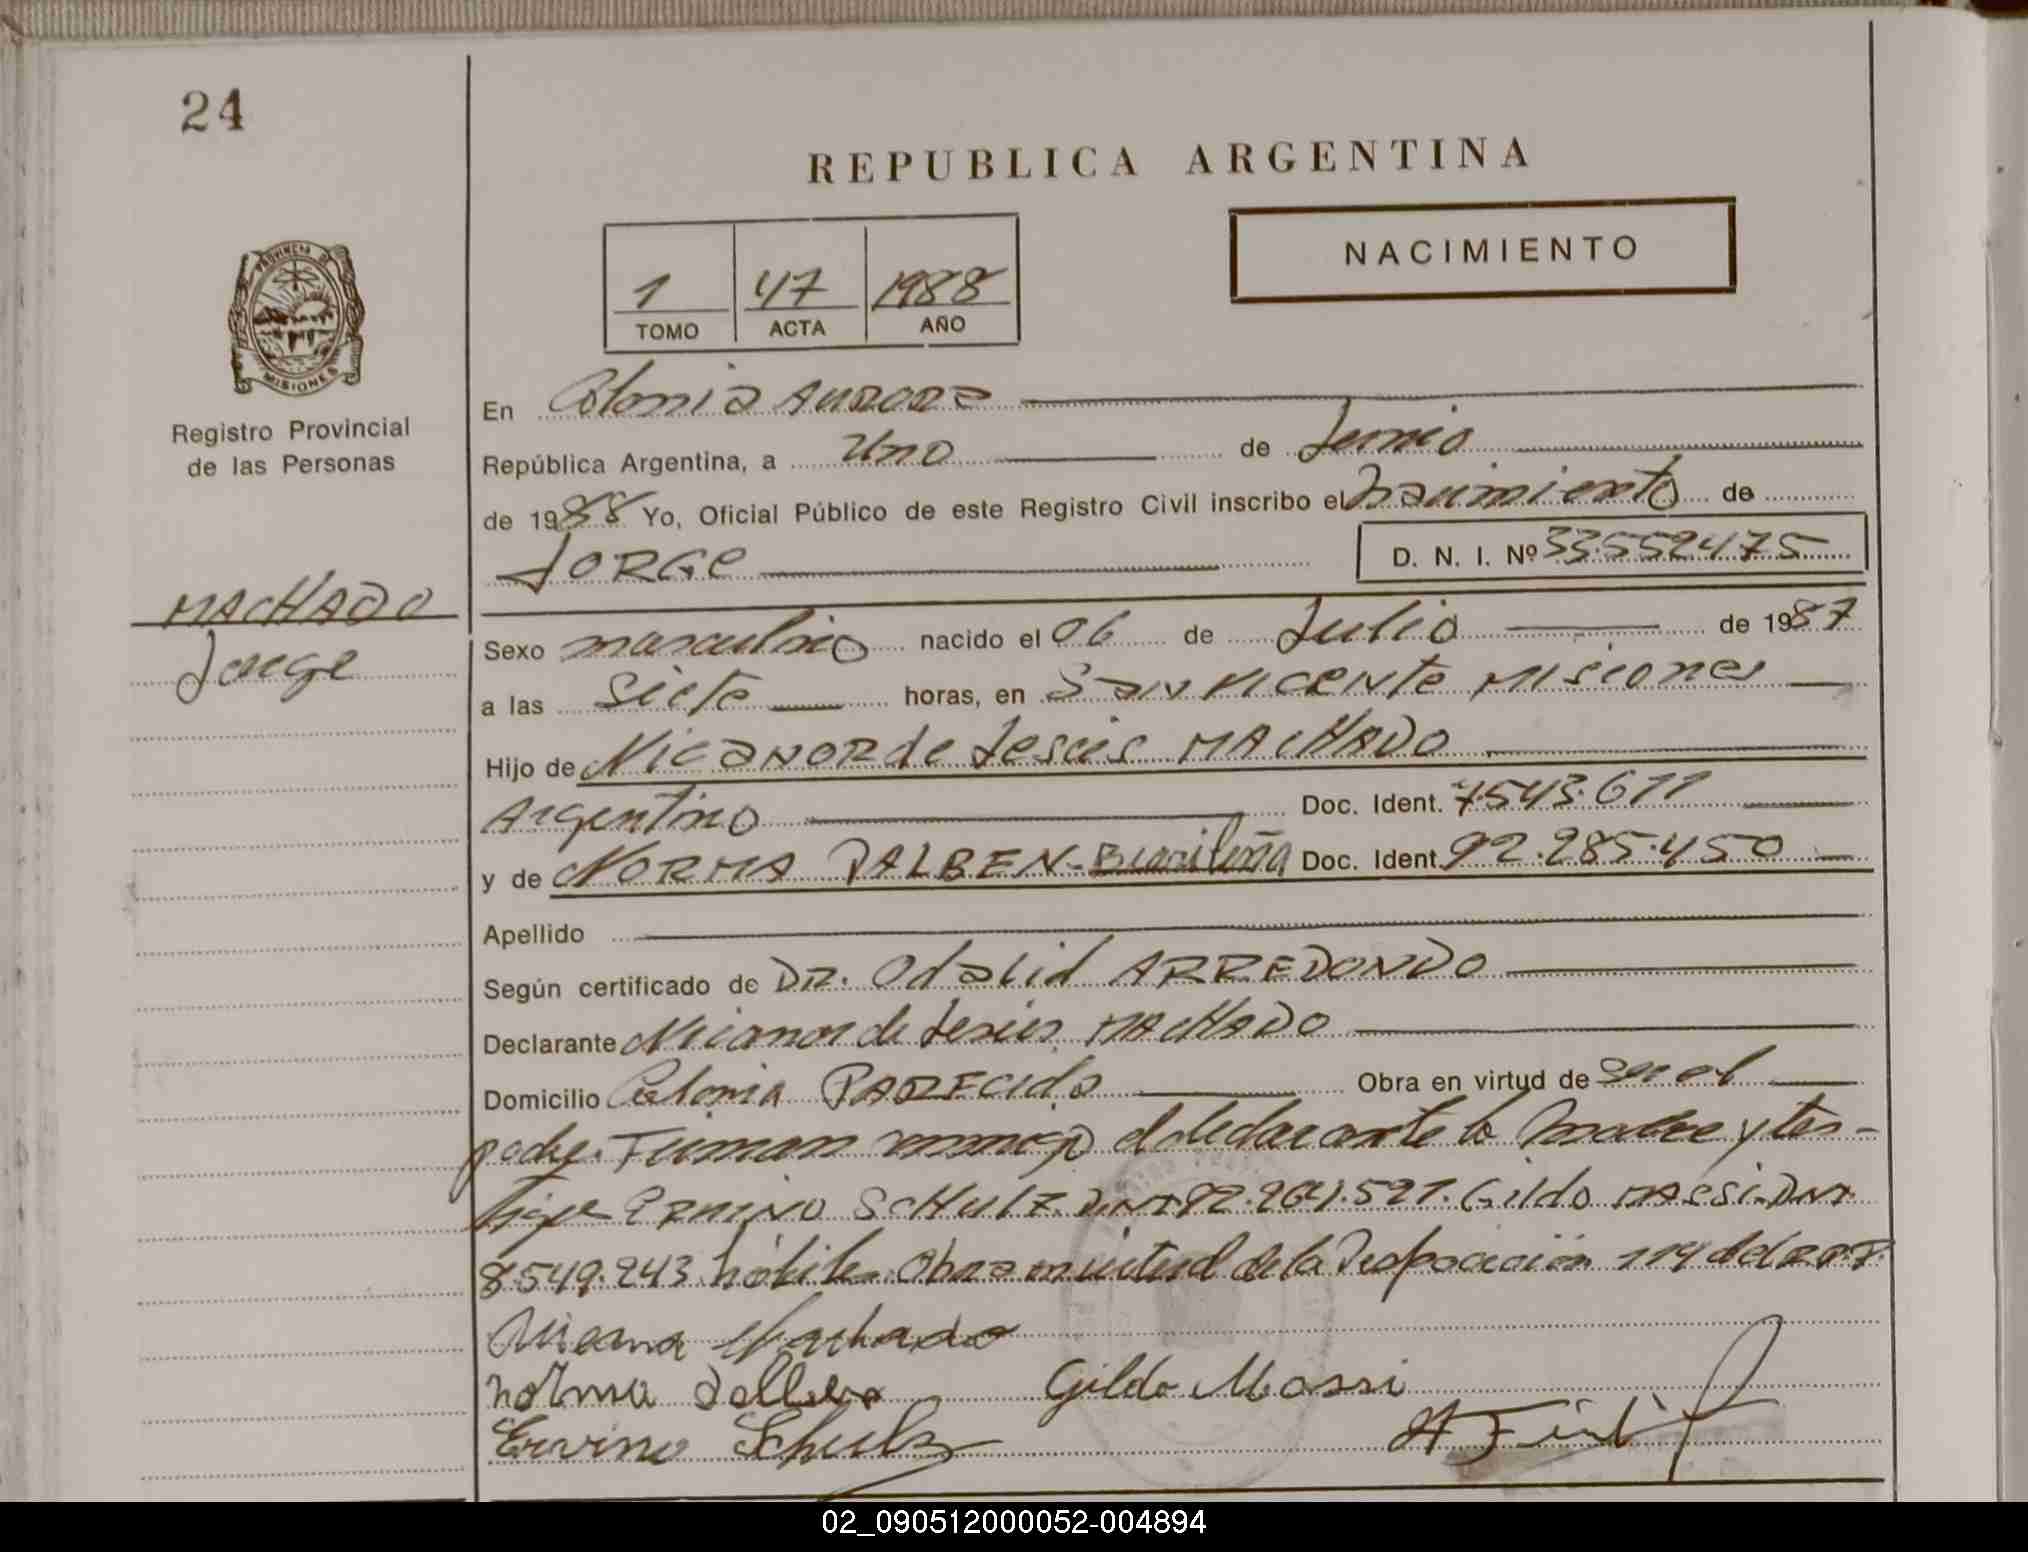 24
REPUBLICA ARGENTINA
NACIMIENTO
1 47 1988
TOMO ACTA AÑO
PROVINCIA DE
MISIONES
Registro Provincial
de las Personas
MACHADO
Jorge
En Colonia AURORA
República Argentina, a Uno de Junio
de 1988 Yo, Oficial Público de este Registro Civil inscribo el Nacimiento de
JORGE D. N. I. Nº 33.552475
Sexo masculino nacido el 06 de Julio de 1987
a las Siete horas, en SAN VICENTE MISIONES
Hijo de NICANOR de Jesús MACHADO
Argentino Doc. Ident. 7.543.611
y de NORMA DALBEN - Brasileña Doc. Ident. 92.285.450
Apellido
Según certificado de DR. Odalid ARREDONDO
Declarante Nicanor de Jesús MACHADO
Domicilio Colonia PARECIDA Obra en virtud de ser el
padre. Firman conmigo el declarante la madre y tes-
tigos ERVINO SCHULZ DNI 92.264.521. Gildo MASSI. DNI
8.549.243 hábiles Obra en virtud de la Disposición 114 del R.P.P.
Machado
norma
Gildo Massi
Ervino Schulz
02_090512000052-004894